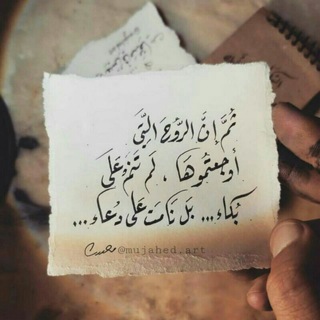 ثُمَّ إِنَّ الرُّوحَ الَّتِي
أَوجَعتُمُوهَا ، لَم تَنَم عَلَى
بُكاء... بَل نَامَت عَلى دُعاء...
@mujahed_art